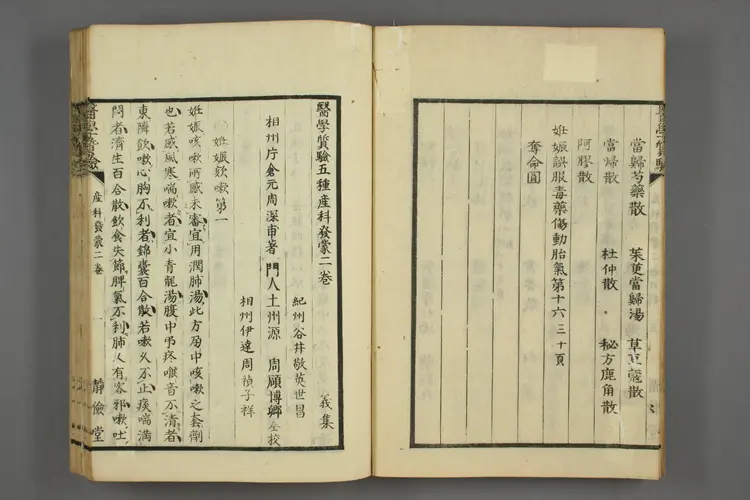 當歸芍藥散 茱萸當歸湯 草豆蔻散
當歸散 杜仲散 秘方鹿角散
阿膠散
妊娠誤服毒藥傷動胎氣第十六 三十頁
奪命圓
醫學質驗五種産科發蒙二卷 義集
紀州谷井敬英世昌
相州片倉元周深甫著 門人土州源 周頤博卿仝校
相州伊達周禎子祥
妊娠欬嗽第一
妊娠咳嗽所感未審宜用潤肺湯此方孕中咳嗽之套劑
也若感風寒喘嗽者宜小青龍湯腹中疼喉音不清者
東隣飲嗽心胸不利者錦囊百合散若嗽久不止痰喘滿
悶者濟生百合散飲食失節脾氣不利肺又有客邪嗽吐
醫學質驗
産科發蒙二卷
一
靜儉堂